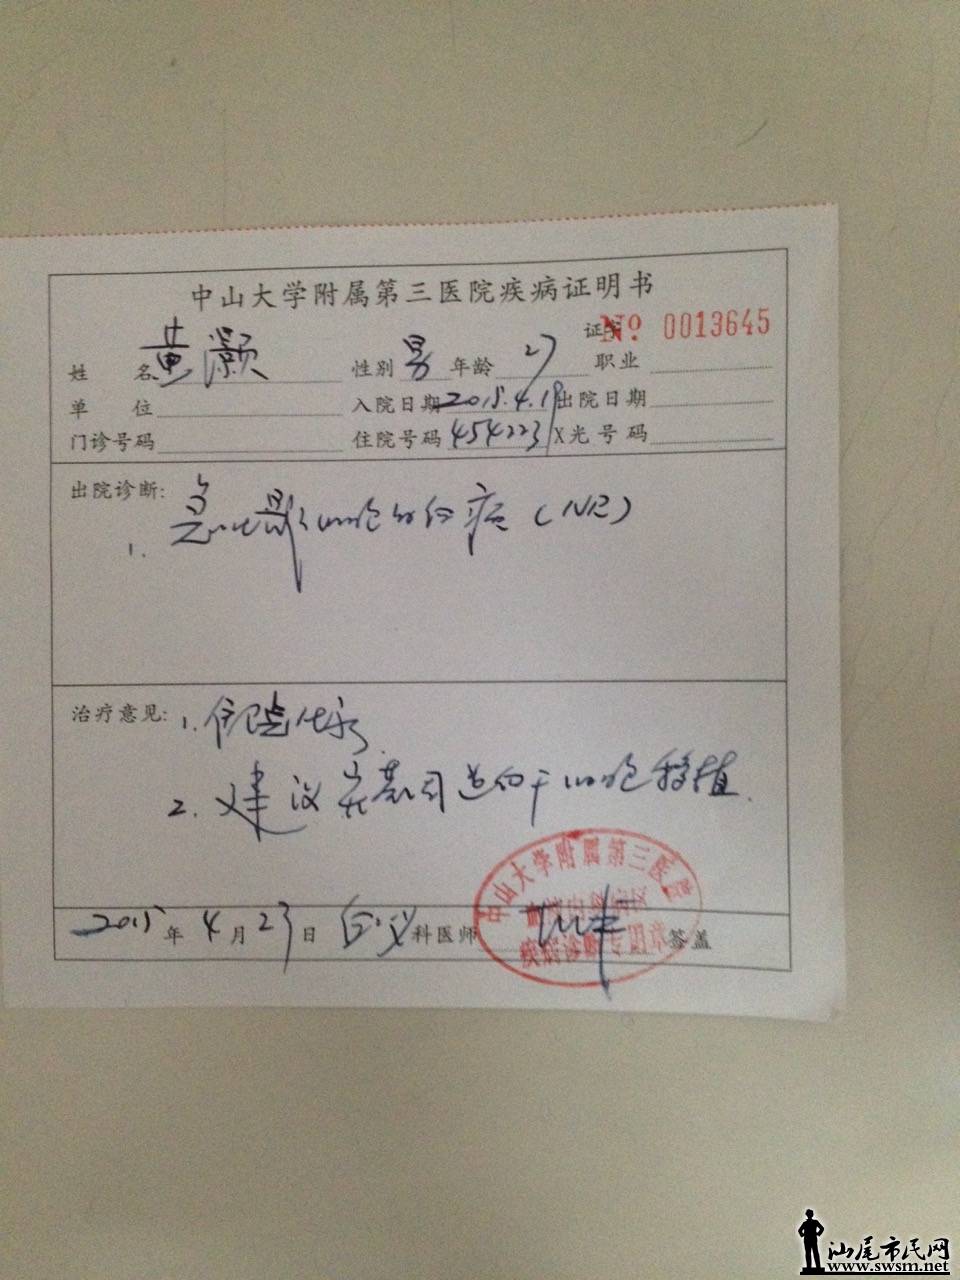 中山大学附属第三医院疾病证明书
证 No 0013645
姓 名 黄灏 性别 男 年龄 27 职业
单 位 入院日期 2015.4.19 出院日期
门诊号码 住院号码 454223 X光号码
出院诊断:
1. 急性 细胞白血病 (
治疗意见: 1. 住院化疗
2. 建议 异基因造血干细胞移植.
2015年4月23日 科医师 签盖
中山大学附属第三医院
疾病诊断专用章
汕尾市民网
www.swsm.net